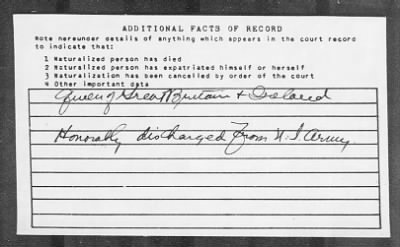 ADDITIONAL FACTS OF RECORD
Note hereunder details of anything which appears in the court record
to indicate that:
1 Naturalized person has died
2 Naturalized person has expatriated himself or herself
3 Naturalization has been cancelled by order of the court
4 Other important data
Queen of Great Britain & Ireland
Honorably discharged from U.S. Army.